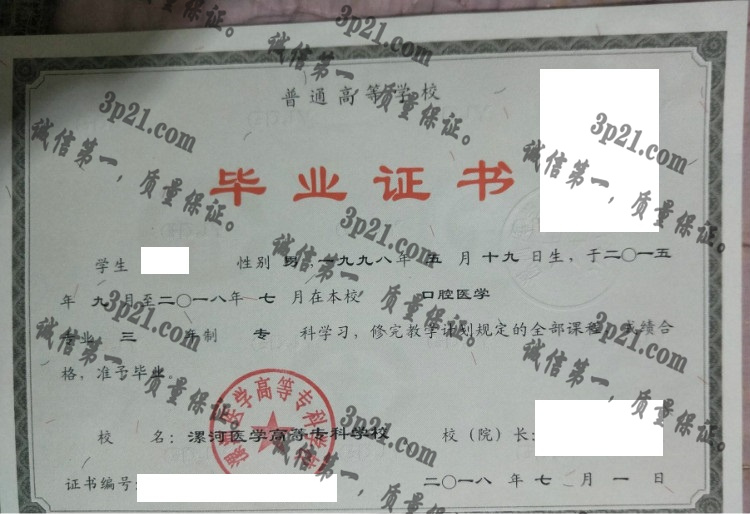 普通高等学校
毕业证书
学生 性别 男，一九九八年 五 月 十九 日生，于二〇一五
年 九 月至二〇一八年 七 月在本校 口腔医学
专业 三 年制 专 科学习，修完教学计划规定的全部课程，成绩合
格，准予毕业。
校 名：漯河医学高等专科学校 校（院）长：
证书编号： 二〇一八 年 七 月 一 日
漯河医学高等专科学校
3p21.com
诚信第一，质量保证。
3p21.com
诚信第一，质量保证。
3p21.com
诚信第一，质量保证。
3p21.com
诚信第一，质量保证。
3p21.com
诚信第一，质量保证。
3p21.com
诚信第一，质量保证。
3p21.com
诚信第一，质量保证。
诚信第一，质量保证。